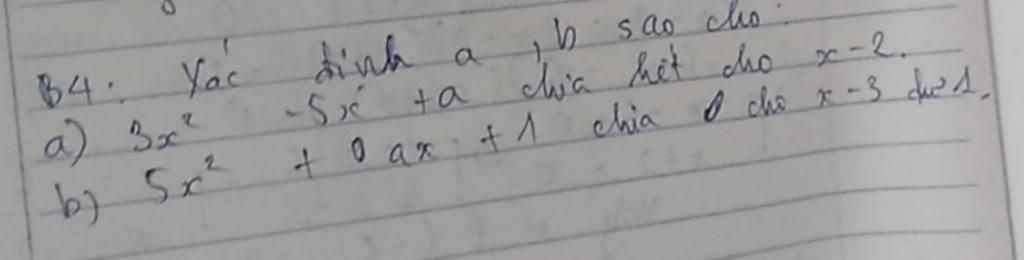 B4: Xác định a, b sao cho:
a) 3x² - 5x + a chia hết cho x - 2.
b) 5x² + ax + 1 chia cho x - 3 dư 1.